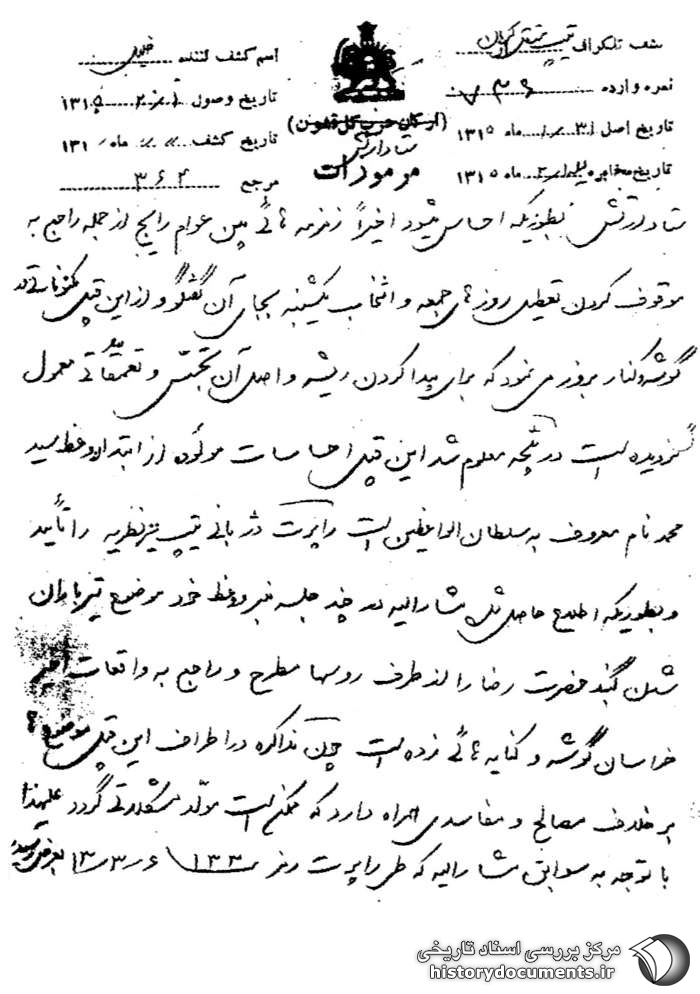 صفت تلگراف تیپ مختلط کرمان
نمره وارده ۳۶
تاریخ اصل ۳۱ ماه ۱۳۱۵
تاریخ مخابره ماه ۱۳۱۵
(ارکان حرب کل قشون)
ستاد ارتش
مرموزات
اسم کشف کننده
تاریخ وصول ۱۳۱۵
تاریخ کشف ماه ۱۳۱
مرجع ۳۶۲
ستاد ارتش بطوریکه احساس میشود اخیراً زمزمه هائی بین عوام رایج از جمله راجع به
موقوف کردن تعطیل روزهای جمعه و انتخاب یکشنبه بجای آن گفتگو و از این قبیل در
گوشه و کنار بروز می نمود که برای پیدا کردن ریشه و اصل آن تجسس و تعمقاتی معمول
گردیده است در نتیجه معلوم شد این قبیل احساسات مولوده از ابتدا وعظ سید
محمد نام معروف به سلطان الواعظین است راپرت دژبانی تیپ نیز نظریه را تأیید
و بطوریکه اطلاع حاصل شد مشارالیه در چند جلسه منبر وعظ خود موضوع تیرباران
شدن گنبد حضرت رضا را از طرف روسها مطرح و راجع به واقعات اخیر
خراسان گوشه و کنایه هائی زده است چون مذاکره در اطراف این قبیل موضوع ها
بر خلاف مصالح و مفاسدی همراه دارد که ممکن است مولد مشکلاتی گردد علیهذا
با توجه به سوابق مشارالیه که طی راپرت رمز ۱۳۳ ۱۳/۳/۶ بعرض رسید
مرکز بررسی اسناد تاریخی
historydocuments.ir